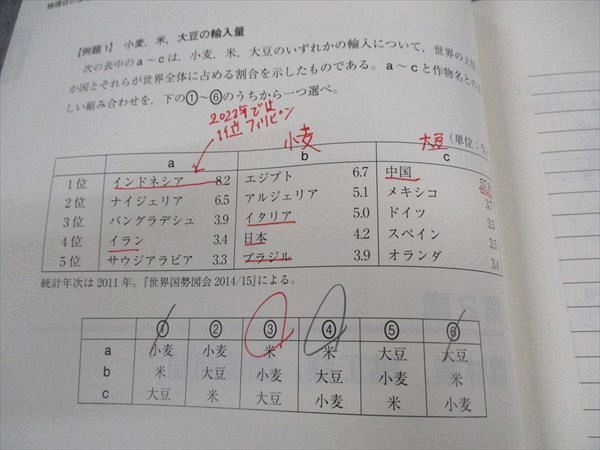 【例題1】 小麦，米，大豆の輸入量
次の表中のa～cは，小麦，米，大豆のいずれかの輸入について，世界の上位
か国とそれらが世界全体に占める割合を示したものである。a～cと作物名との
しい組み合わせを，下の①～⑥のうちから一つ選べ。
2022年では
1位 フィリピン
小麦
大豆 (単位：
a b c
1位 インドネシア 8.2 エジプト 6.7 中国
2位 ナイジェリア 6.5 アルジェリア 5.1 メキシコ 3.7
3位 バングラデシュ 3.9 イタリア 5.0 ドイツ 3.5
4位 イラン 3.4 日本 4.2 スペイン 3.5
5位 サウジアラビア 3.3 ブラジル 3.9 オランダ 3.4
統計年次は2011年。『世界国勢図会2014/15』による。
① ② ③ ④ ⑤ ⑥
a 小麦 小麦 米 米 大豆 大豆
b 米 大豆 小麦 大豆 小麦 米
c 大豆 米 大豆 小麦 米 小麦